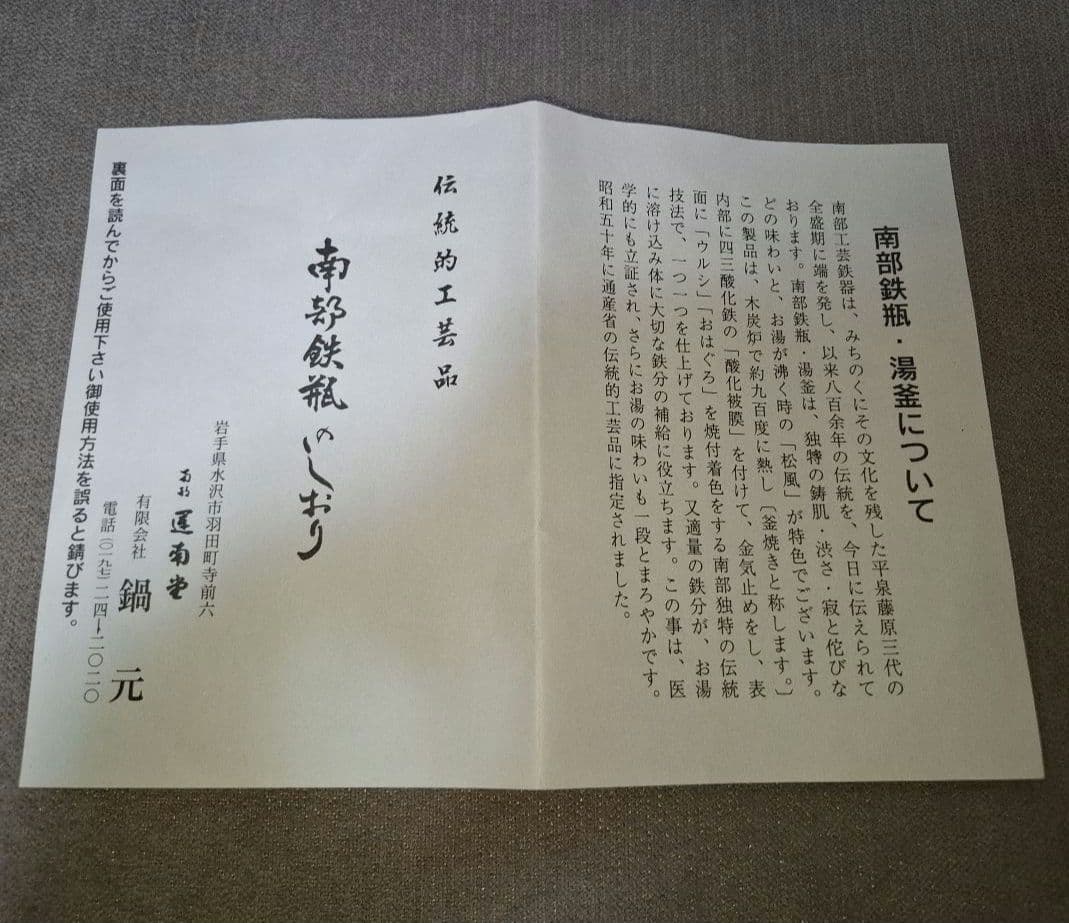 南部鉄瓶・湯釜について
南部工芸鉄器は、みちのくにその文化を残した平泉藤原三代の
全盛期に端を発し、以来八百余年の伝統を、今日に伝えられて
おります。南部鉄瓶・湯釜は、独特の鋳肌・渋さ・寂と侘びな
どの味わいと、お湯が沸く時の「松風」が特色でございます。
この製品は、木炭炉で約九百度に熱し〔釜焼きと称します。〕
内部に四三酸化鉄の「酸化被膜」を付けて、金気止めをし、表
面に「ゥルシ」「おはぐろ」を焼付着色をする南部独特の伝統
技法で、一つ一つを仕上げております。又適量の鉄分が、お湯
に溶け込み体に大切な鉄分の補給に役立ちます。この事は、医
学的にも立証され、さらにお湯の味わいも一段とまろやかです。
昭和五十年に通産省の伝統的工芸品に指定されました。
伝統的工芸品
南部鉄瓶のしおり
岩手県水沢市羽田町寺前六
運南堂
有限会社 鍋元
電話(〇一九七)二四-二〇二〇
裏面を読んでからご使用下さい御使用方法を誤ると錆びます。